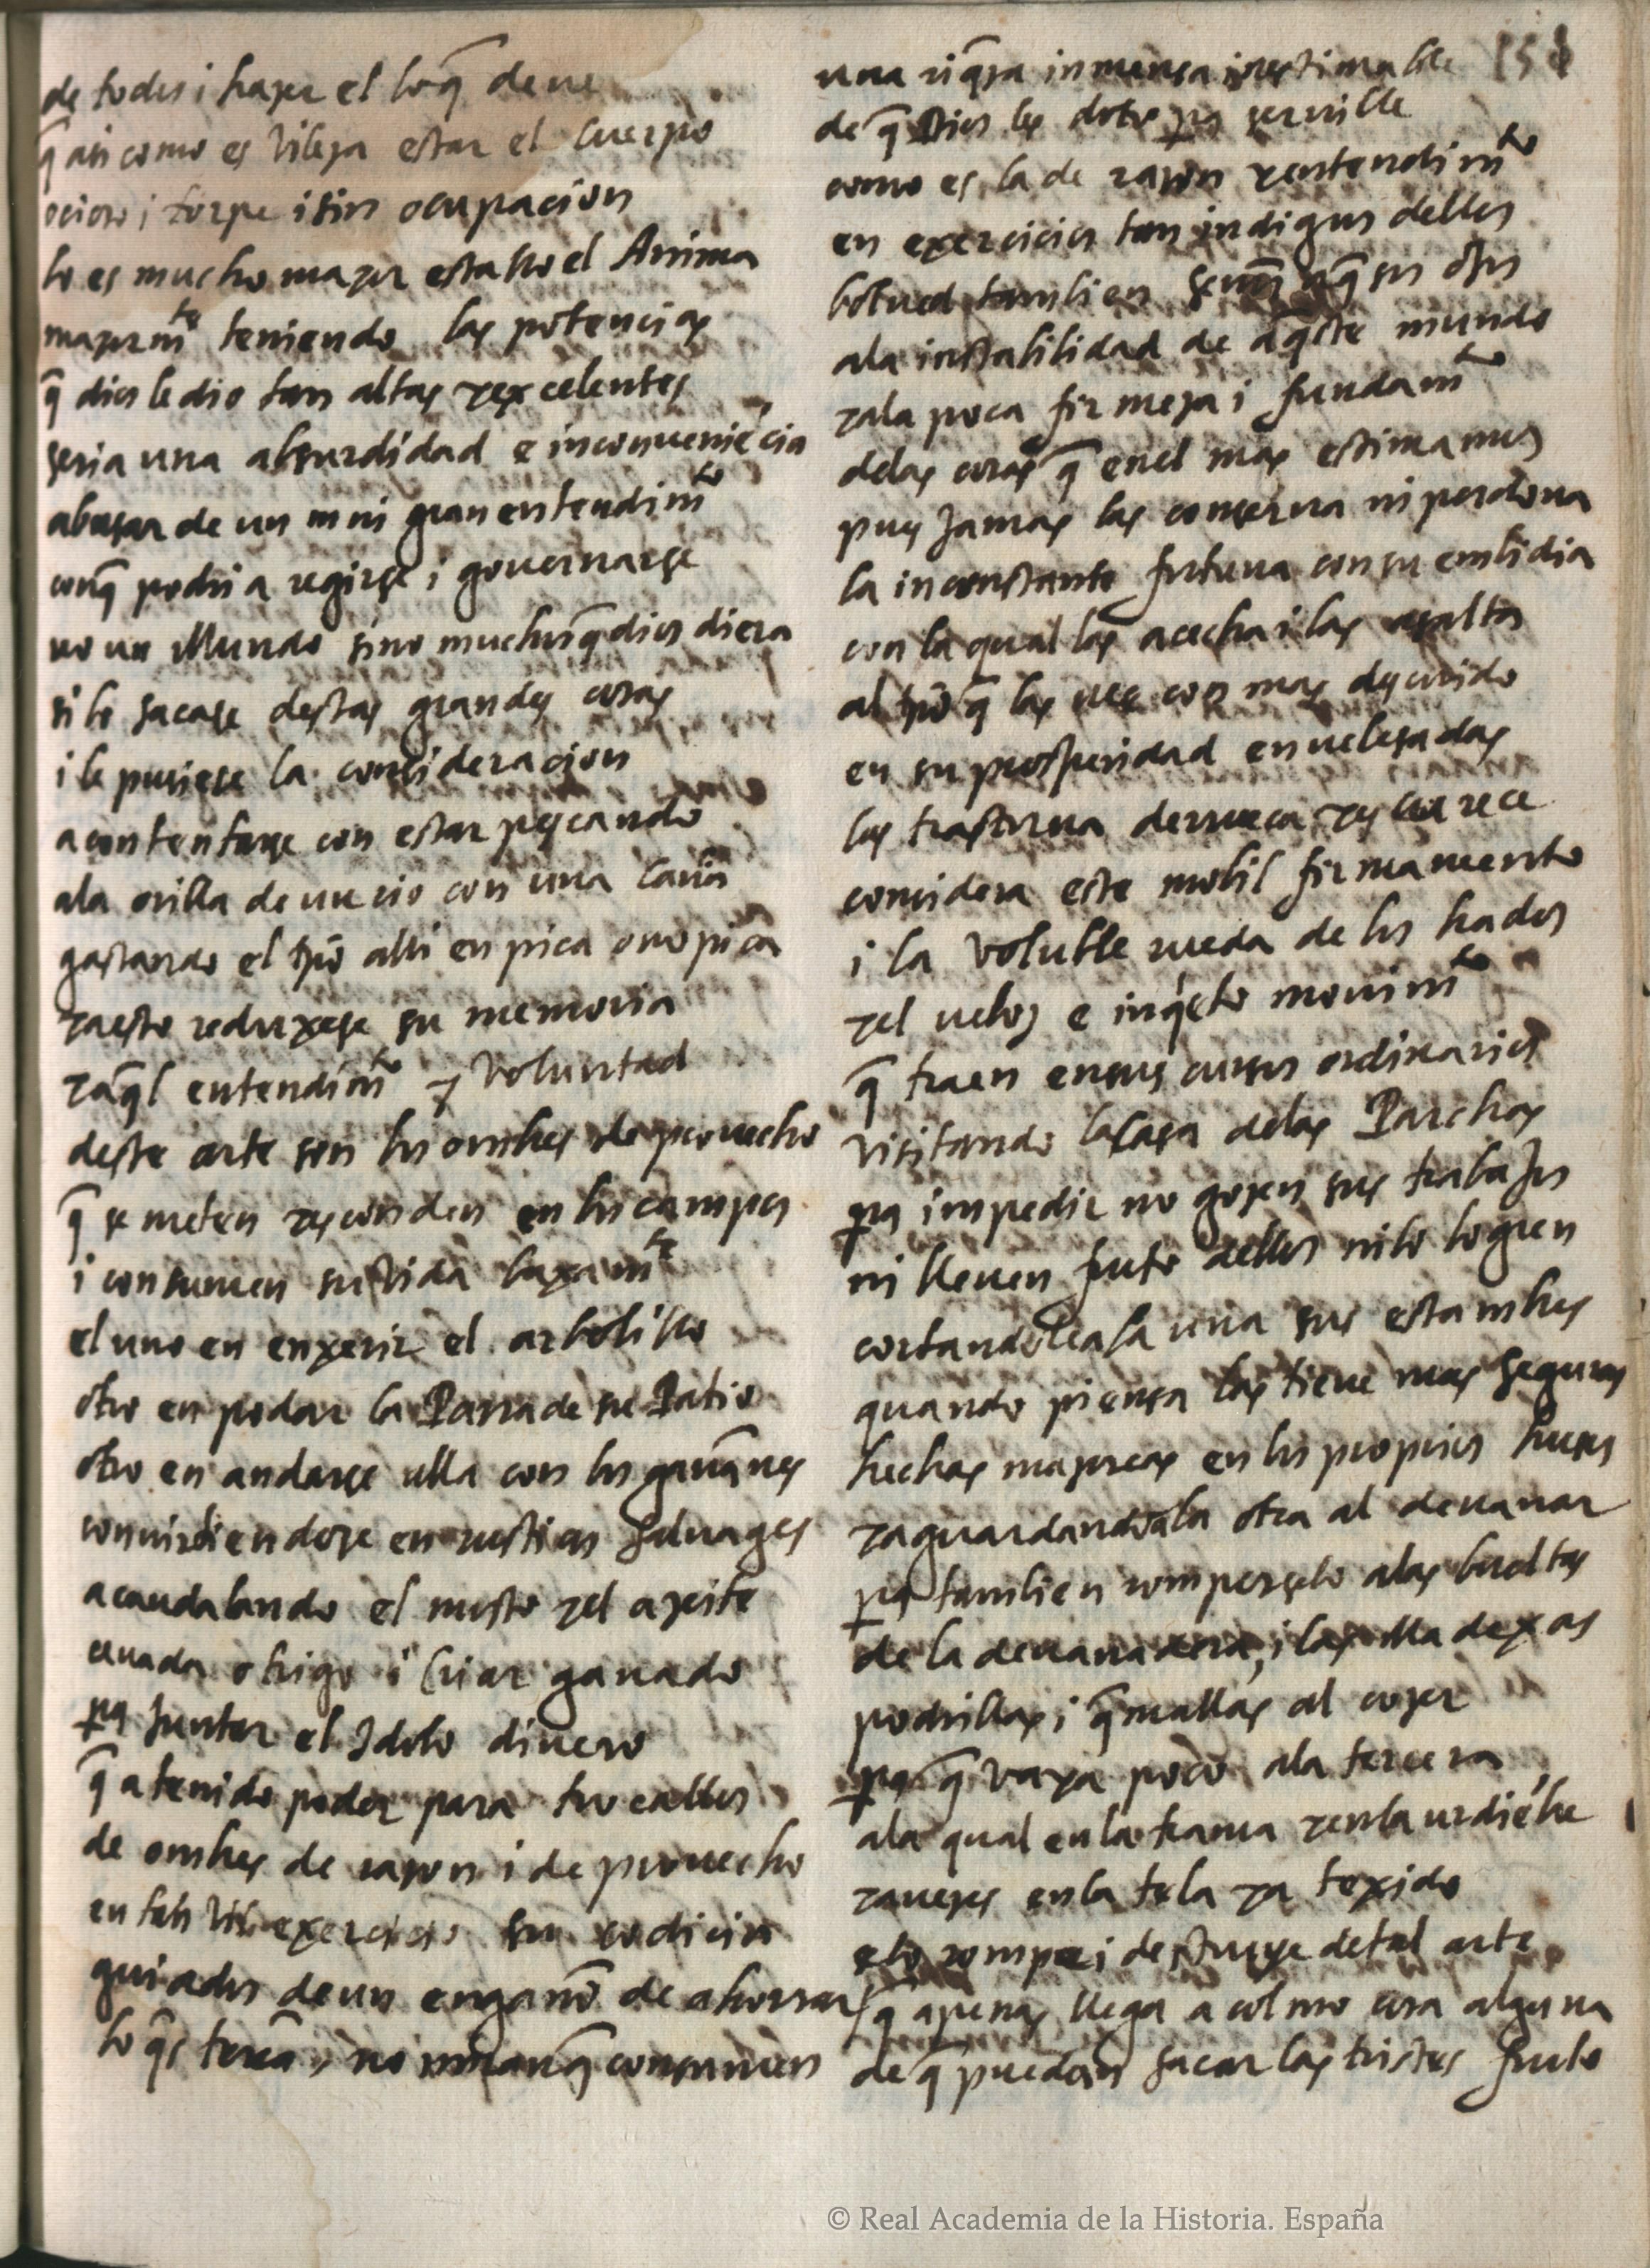 de todos i hazer el lo q̄ deue
q̄ asi como es vileza estar el cuerpo
ocioso i torpe i sin ocupacion
lo es mucho mayor estallo el Anima
mayormte teniendo las potencias
q̄ dios le dio tan altas y excelentes
seria una absurdidad e inconueniēcia
abusar de un mui gran entendimto
con q̄ podria regirse i gouernarse
no un Mundo sino muchos q̄ dios diera
si lo sacase destas grandes cosas
i le pusiese la consideracion
a contentarse con estar pescando
ala orilla de un rio con una caña
gastando el tpō alli en pica o no pica
y a esto reduxese su memoria
y aq̄l entendimto y voluntad
desta arte son los onbres de prouecho
q̄ se meten y esconden en los campos
i consumen su vida baxamte
el uno en enxerir el arbolillo
otro en podar la Parra de su Patio
otro en andarse alla con los gañanes
conuirtiendose en rusticos saluages
acaudalando el mosto y el azeite
ceuada o trigo i criar ganado
pa juntar el Idolo dinero
q̄ a tenido poder para trocallos
de onbres de razon i de prouecho
en tan vil exercicio su codicia
guiados de un engaño de ahorrar
lo q̄s tierra, no miran q̄ consumen
158
una riq̄za inmensa inestimable
de q̄ Dios les doto pa seruille
como es la de razon y entendimto
en exercicios tan indignos dellos
bolued tambien señor aq̄sos ojos
ala instabilidad de aq̄ste mundo
y ala poca firmeza i fundamto
delas cosas q̄ en el mas estimamos
pues jamas las conserua ni perdona
la inconstante fortuna con su enbidia
con la qual las acecha i las asalta
al tpō q̄ las uee con mas descuido
en su prosperidad enuelesadas
las trastorna derrueca y escurece
considera este mobil firmamento
i la voluble rueda de los hados
y el ueloz e inq̄eto mouimto
q̄ traen en sus cursos ordinarios
visitando la casa delas Parchas
pa impedir no gozen sus trabajos
ni lleuen fruto dellos ni lo logren
cortandole ala una sus estambres
quando piensa las tiene mas seguras
hechas mazorcas en los propios husos
y aguardando ala otra al deuanar
pa tambien romperselo alas bueltas
de la deuanadera, i las madexas
podrillas i q̄mallas al cozer
pa q̄ vaya poco ala tercera
ala qual en la trama y en la urdiēbre
y a uezes en la tela ya texido
se lo rompe i destruye de tal arte
q̄ apenas llega a colmo cosa alguna
de q̄ puedan sacar las tristes fruto
© Real Academia de la Historia. España